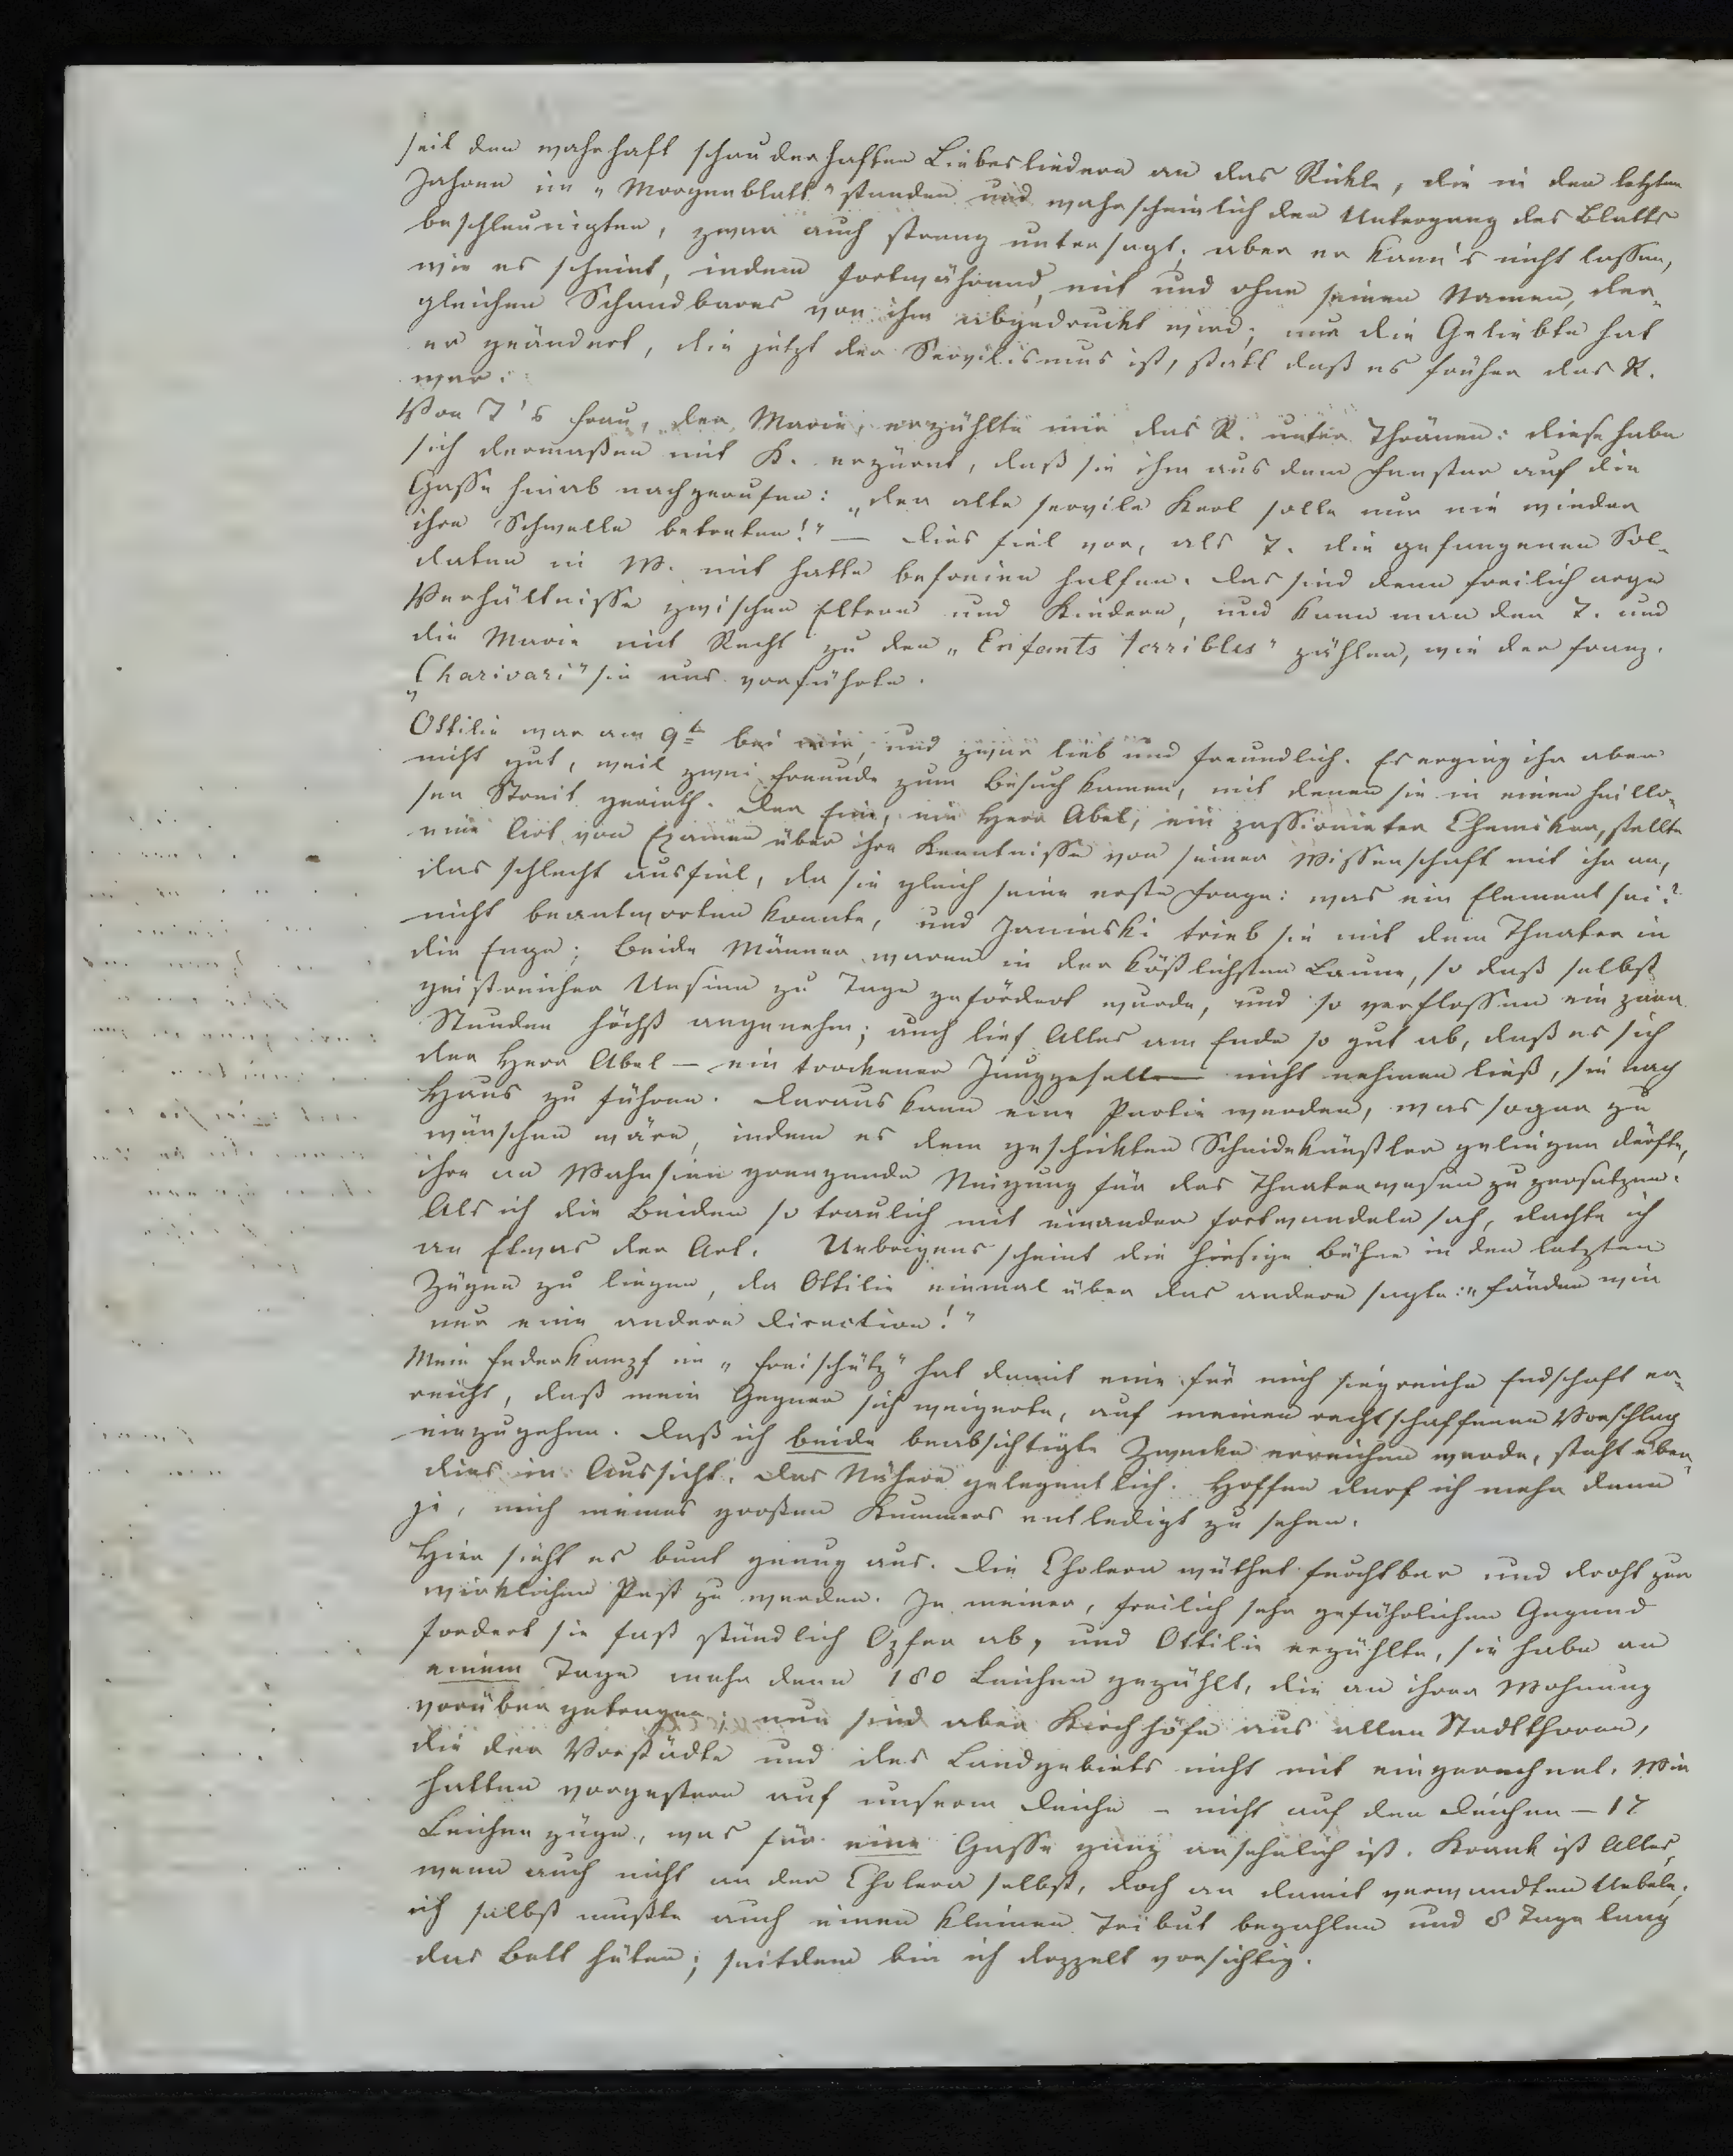 seit den wahrhaft schauderhaften Liebesliedern an das Rickle, die in den letzten
Jahren im „Morgenblatt" standen und wahrscheinlich den Untergang des Blatts
beschleunigten, zwar auch streng untersagt, aber er kann's nicht lassen,
wie es scheint, indem fortwährend, mit und ohne seinen Namen, der-
gleichen Schandbares von ihm abgedruckt wird; nur die Geliebte hat
er geändert, die jetzt der Servilismus ist, statt daß es früher das R.
war.
Von T's Frau, der Marie, erzählte mir das R. unter Thränen: diese habe
sich dermaßen mit K. erzürnt, daß sie ihm aus dem Fenster auf die
Gasse hinab nachgerufen: „der alte servile Kerl solle nur nie wieder
ihre Schwelle betreten!" — Dies fiel vor, als T. die gefangenen Sol-
daten in W. mit hatte befreien helfen. Das sind denn freilich arge
Verhältnisse zwischen Eltern und Kindern, und kann man den T. und
die Marie mit Recht zu den „Enfants terribles" zählen, wie der franz.
„Charivari" sie uns vorführte.
Ottilie war am 9t bei mir, und zwar lieb und freundlich. Es erging ihr aber
nicht gut, weil zwei Freunde zum Besuch kamen, mit denen sie in einen heillo-
sen Streit gerieth. Der Eine, ein Herr Abel, ein passionirter Chemiker, stellte
eine Art von Examen über ihre Kenntnisse von seiner Wissenschaft mit ihr an,
das schlecht ausfiel, da sie gleich seine erste Frage: was ein Element sei?
nicht beantworten konnte, und Janinski trieb sie mit dem Theater in
die Enge; beide Männer waren in der köstlichsten Laune, so daß selbst
geistreicher Unsinn zu Tage gefördert wurde, und so verflossen ein paar
Stunden höchst angenehm; auch lief Alles am Ende so gut ab, daß es sich
der Herr Abel — ein trockener Junggeselle — nicht nehmen ließ, sie nach
Haus zu führen. Daraus kann eine Partie werden, was sogar zu
wünschen wäre, indem es dem geschickten Scheidekünstler gelingen dürfte,
ihre an Wahnsinn grenzende Neigung für das Theaterwesen zu zersetzen.
Als ich die Beiden so traulich mit einander fortwandeln sah, dachte ich
an Etwas der Art. Uebrigens scheint die hiesige Bühne in den letzten
Zügen zu liegen, da Ottilie einmal über das andere sagte: „fänden wir
nur eine andere Direction!"
Mein Federkampf im „Freischütz" hat damit eine für mich siegreiche Endschaft er-
reicht, daß mein Gegner sich weigerte, auf meinen rechtschaffenen Vorschlag
einzugehen. Daß ich beide beabsichtigte Zwecke erreichen werde, steht über-
dies in Aussicht. Das Nähere gelegentlich. Hoffen darf ich mehr denn
je, mich meines großen Kummers entledigt zu sehen.
Hier sieht es bunt genug aus. Die Cholera wüthet furchtbar und droht zur
wirklichen Pest zu werden. In meiner, freilich sehr gefährlichen Gegend
fordert sie fast stündlich Opfer ab, und Ottilie erzählte, sie habe an
einem Tage mehr denn 180 Leichen gezählt, die an ihrer Wohnung
vorüber getragen; nun sind aber Kirchhöfe aus allen Stadtthoren,
die der Vorstädte und des Landgebiets nicht mit eingerechnet. Wir
hatten vorgestern auf unserm Deiche — nicht auf den Deichen — 17
Leichenzüge, was für eine Gasse ganz ansehnlich ist. Krank ist Alles,
wenn auch nicht an der Cholera selbst, doch an damit verwandten Uebeln;
ich selbst mußte auch einen kleinen Tribut bezahlen und 8 Tage lang
das Bett hüten; seitdem bin ich doppelt vorsichtig.